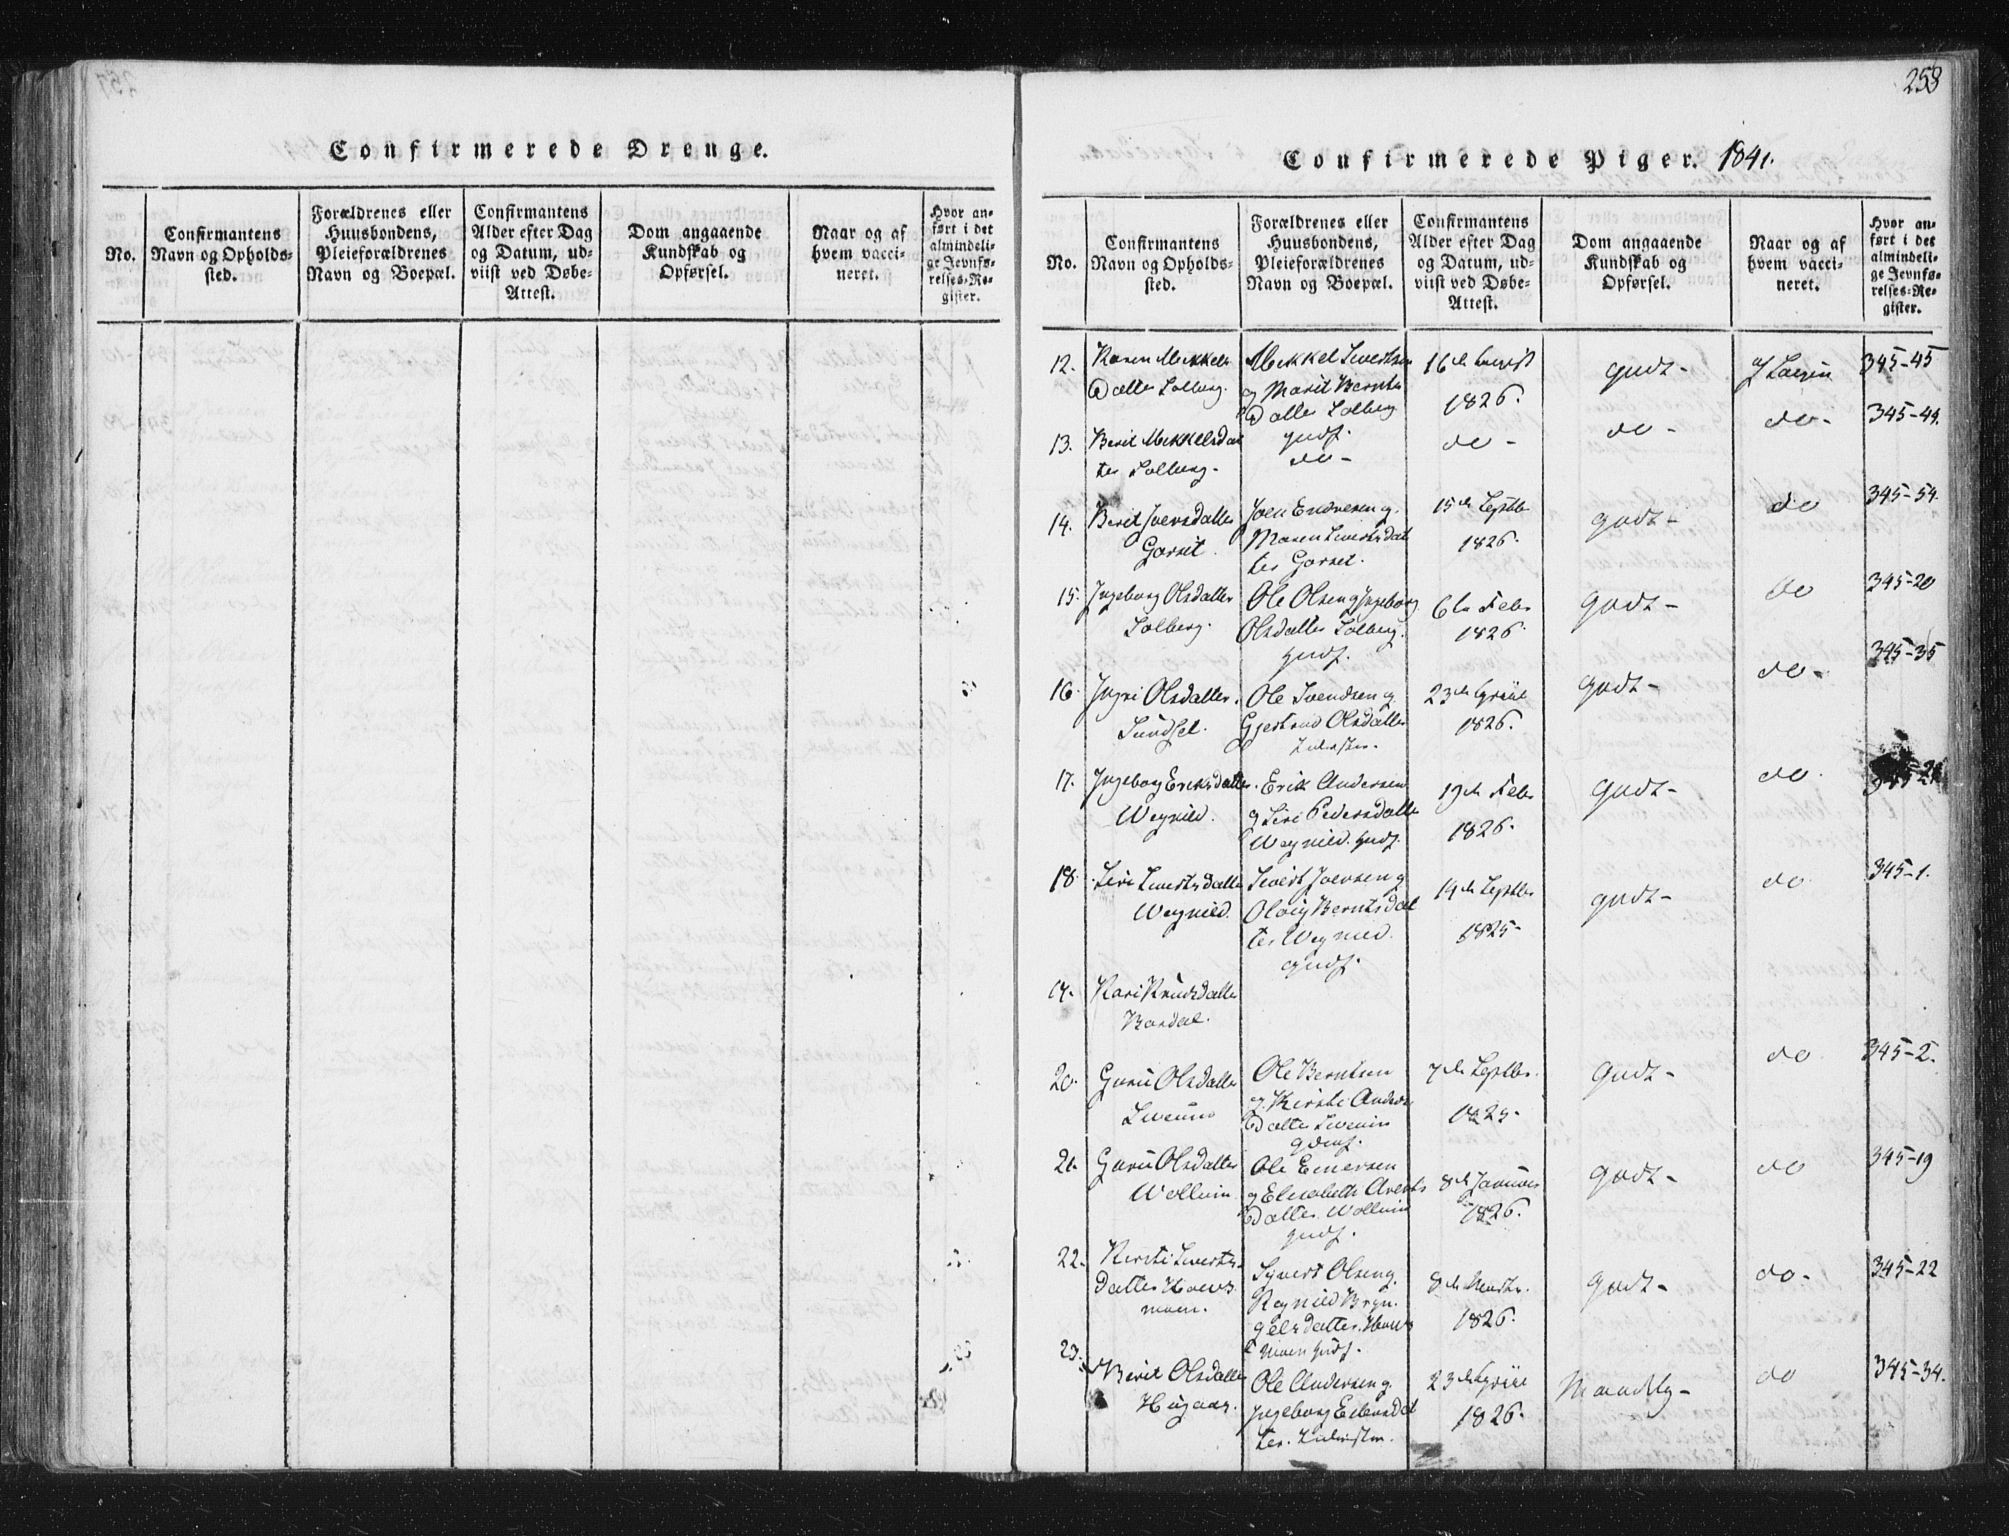 258
Confirmerede Drenge.
No.
Confirmantens
Navn og Opholds-
sted.
Forældrenes eller
Huusbondens,
Pleieforældrenes
Navn og Boepæl.
Confirmantens
Alder efter Dag
og Datum, ud-
viist ved Døbe-
Attest.
Dom angaaende
Kundskab og
Opførsel.
Naar og af
hvem vacci-
neret.
Hvor an-
ført i det
almindeli-
ge Jevnfø-
relses-Re-
gister.
Confirmerede Piger. 1841.
No.
Confirmantens
Navn og Opholds-
sted.
Forældrenes eller
Huusbondens,
Pleieforældrenes
Navn og Boepæl.
Confirmantens
Alder efter Dag
og Datum, ud-
viist ved Døbe-
Attest.
Dom angaaende
Kundskab og
Opførsel.
Naar og af
hvem vacci-
neret.
Hvor an-
ført i det
almindeli-
ge Jevnfø-
relses-Re-
gister.
12.
Karen Mikkels
Datter Solberg.
Mikkel Sivertsen
og Marit Bernts
Datter Solberg
16de
1826.
godt-
345-45
13.
Berit Mikkelsdat
ter Solberg-
do-
do-
do-
do-
345-44.
14.
Berit Joensdatter
Garset.
Joen Endresen og
Maren Sivertsdat
ter Garset.
15de Septbr
1826.
godt-
do
345-54.
15.
Ingeborg Olsdatter
Solberg.
Ole Olsen og Ingeborg
Olsdatter Solberg.
6te Febr
1826.
Godt-
do
345-20
16.
Ingri Olsdatter.
Sundset.
Ole Svendsen og
Gjertrud Olsdatter
23de April
1826.
godt-
do-
345-35
17.
Ingeborg Eriksdatter.
Wognild.
Erik Andersen
og Siri Pedersdatter
Wognild.
19de Febr
1826.
Godt-
do.
18.
Siri Sivertsdatter
Wognild.
Sivert Joensen og
Olöug Berntsdat
ter Wognild
14de Septbr
1825-
godt-
do
345-1.
19.
Kari Knudsdatter
Bardal.
20.
Guru Olsdatter
Ole Berntsen
og Kirsti Anders
Datter
7de Septbr.
1825-
Godt-
do
345-2.
21.
Guru Olsdatter
Wollum
Ole Einersen
og Elisabeth Arents
Datter Wollum
8de Januar
1826.
Godt-
do
345-19
22.
Kirsti Siverts-
datter Hoevs
moen.
Syvert Olsen og
Ragnild Bryn.
gelsdatter Hoevs
moen
8de Martz.
1826.
Godt-
do-
345-22
23.
Berit Olsdatter
Haugaar.
Ole Andersen og
Ingeborg Eilersdat
ter.
23de April
1826.
Maadelg-
do
345-34.